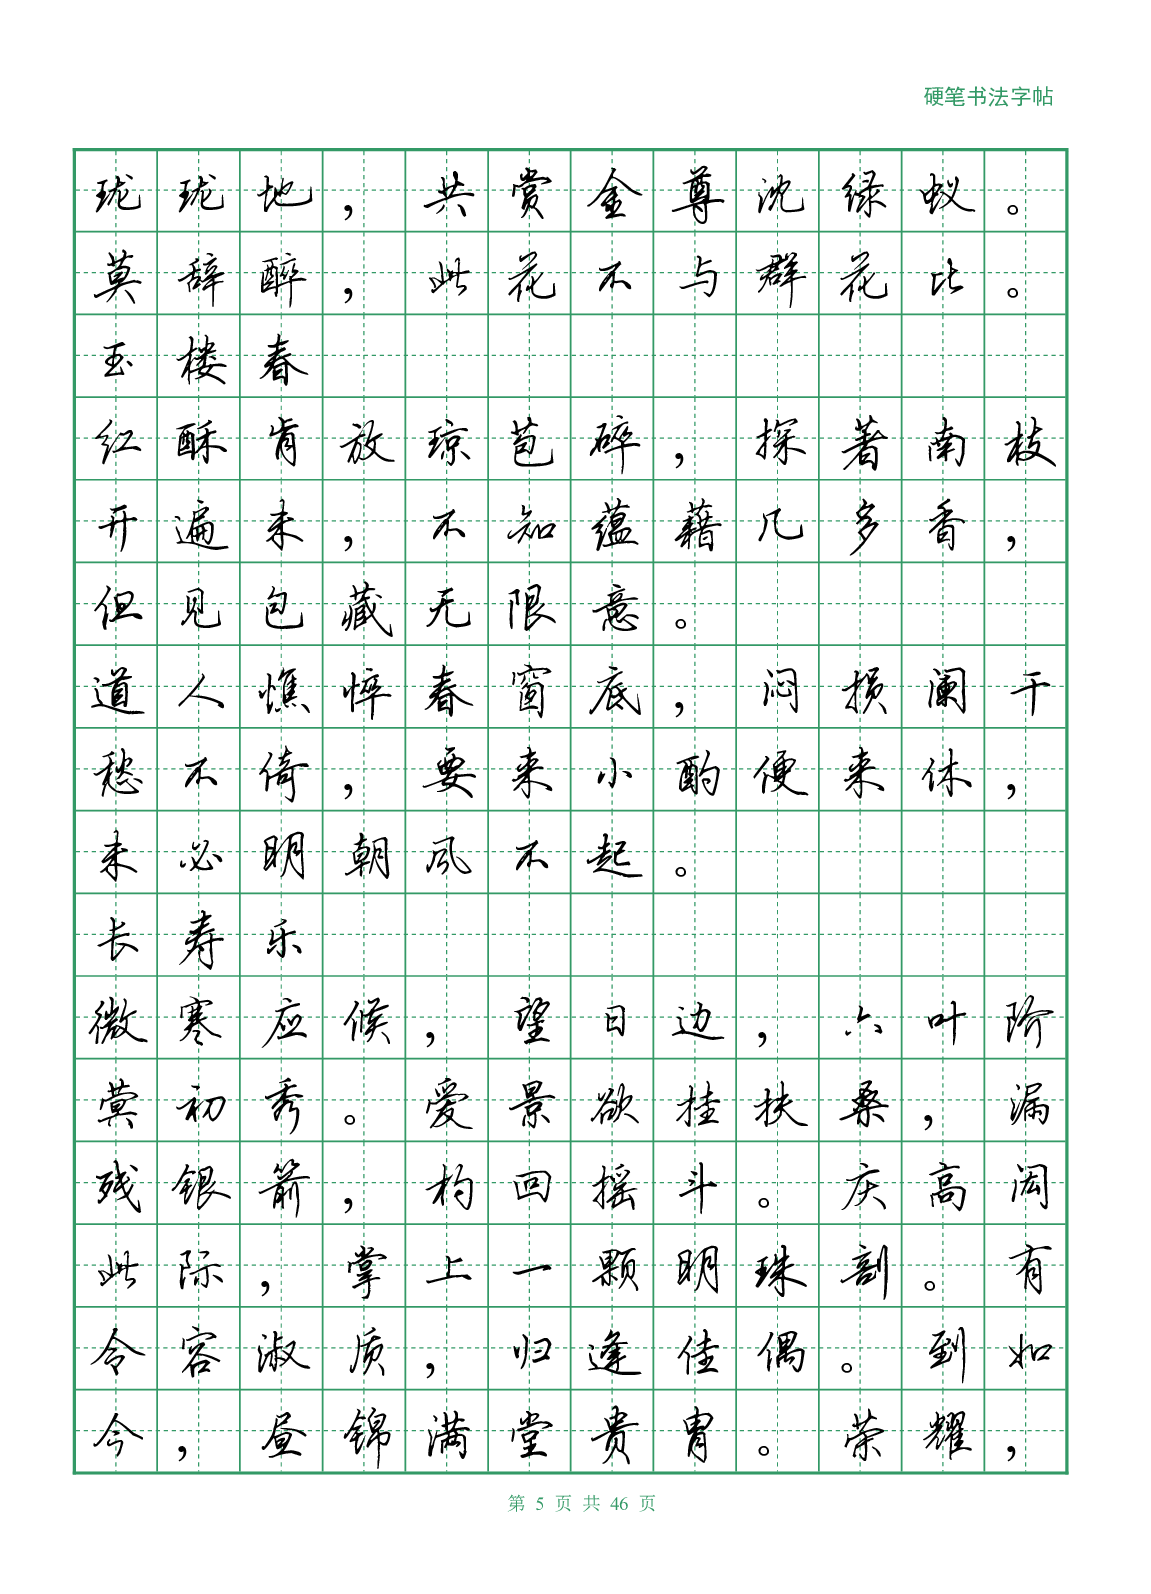 硬笔书法字帖
珑珑地，共赏金尊沈绿蚁。
莫辞醉，此花不与群花比。
玉楼春
红酥肯放琼苞碎，探著南枝
开遍未，不知蕴藉几多香，
但见包藏无限意。
道人憔悴春窗底，闷损阑干
愁不倚，要来小酌便来休，
未必明朝风不起。
长寿乐
微寒应候，望日边，六叶阶
蓂初秀。爱景欲挂扶桑，漏
残银箭，杓回摇斗。庆高闳
此际，掌上一颗明珠剖。有
令容淑质，归逢佳偶。到如
今，昼锦满堂贵胄。荣耀，
第 5 页 共 46 页